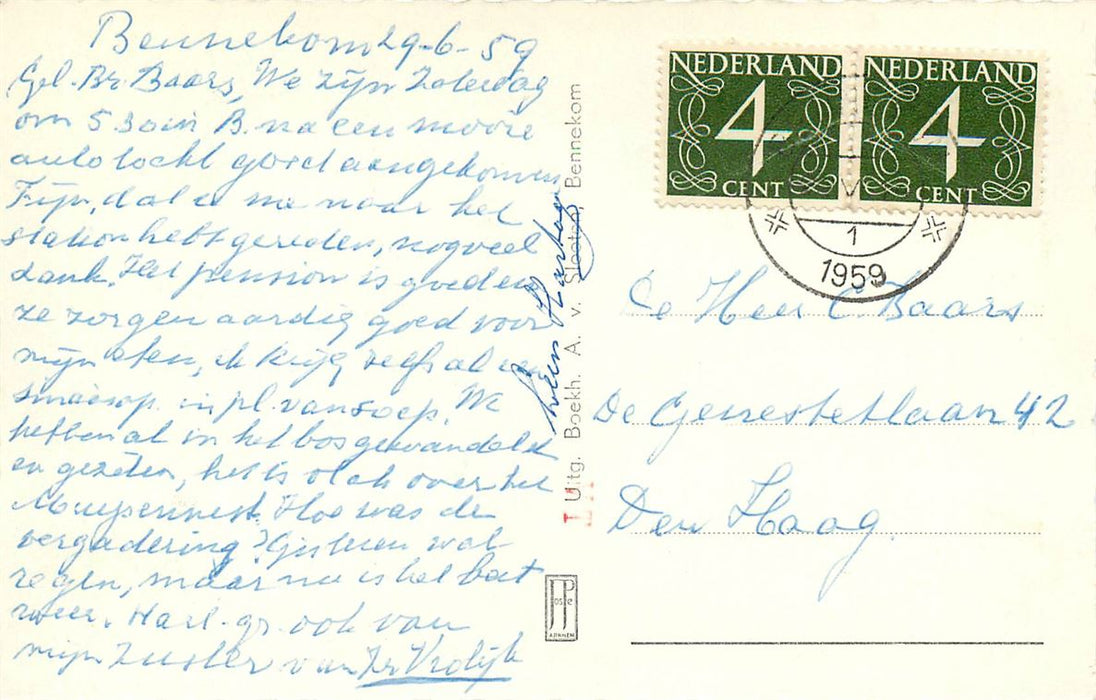 Bennekom 29-6-59
Gel. Br. Baars, We zijn Zaterdag
om 5.30 in B. na een mooie
autotocht goed aangekomen
Fijn, dat u me naar het
station hebt gereden, nog veel
dank. Het pension is goed en
ze zorgen aardig goed voor
mijn eten, ik krijg zelfs al een
sinaasap. in pl. van soep. We
hebben al in het bos gewandeld
en gezeten, het is vlak over het
Hoe was de
vergadering? Gisteren wat
regen, maar nu is het bat
weer. Hartl. gr. ook van
mijn Zuster van Zr Vrolijk
Uitg. Boekh. A. v. Sloten, Bennekom
JP
oste
ARNHEM
NEDERLAND
4
CENT
NEDERLAND
4
CENT
1
1959
De Heer C. Baars
De Genestetlaan 42
Den Haag